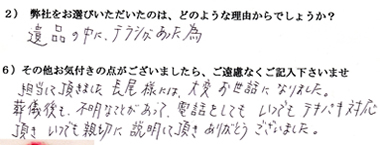 2） 弊社をお選びいただいたのは、どのような理由からでしょうか？
遺品の中に、チラシがあった為
6）その他お気付きの点がございましたら、ご遠慮なくご記入下さいませ
担当して頂きました 長尾様には、大変お世話になりました。
葬儀後も、不明なことがあって、電話をしても いつでもテキパキ対応
頂き いつでも親切に 説明して頂き ありがとうございました。